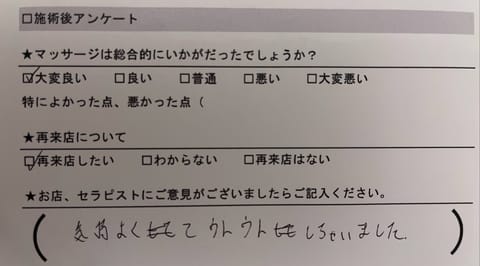 □施術後アンケート
★マッサージは総合的にいかがだったでしょうか？
☑大変良い □良い □普通 □悪い □大変悪い
特によかった点、悪かった点（
★再来店について
☑再来店したい □わからない □再来店はない
★お店、セラピストにご意見がございましたらご記入ください。
（気持よくて ウトウトしちゃいました）